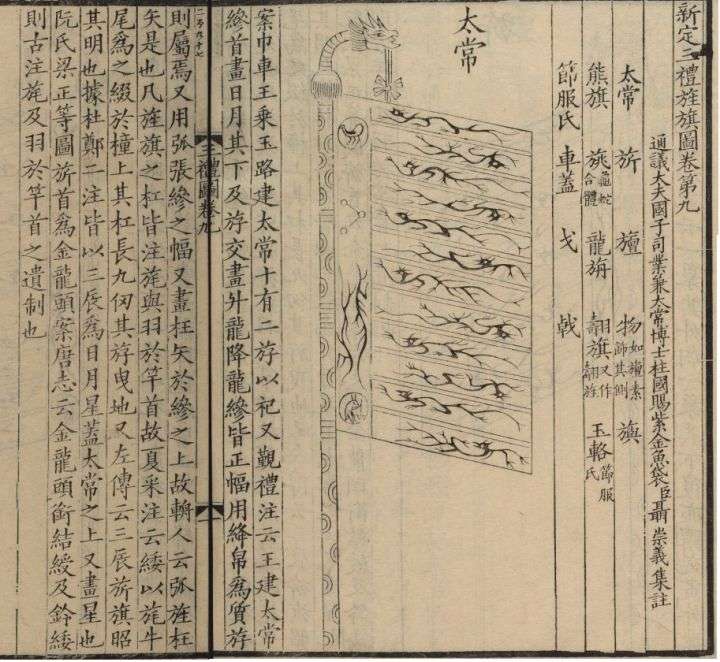 新定三禮旌旗圖卷第九
通議大夫國子司業兼太常博士柱國賜紫金魚袋臣聶崇義集註
太常 旂 旜 物如旜素飾其側 旟
熊旗 旐龜蛇合體 龍旃 翿旌又作翿旌 玉輅節服氏
節服氏 車蓋 戈 戟
太常
案巾車王乘玉路建太常十有二斿以祀又覲禮注云王建太常
縿首畫日月其下及斿交畫升龍降龍縿皆正幅用絳帛爲質斿
三禮圖卷九
則屬焉又用弧張縿之幅又畫枉矢於縿之上故輈人云弧旌枉
矢是也凡旌旗之杠皆注旄與羽於竿首故夏采注云綏以旄牛
尾爲之綴於橦上其杠長九仞其斿曳地又左傳云三辰旂旗昭
其明也據杜鄭二注皆以三辰爲日月星蓋太常之上又畫星也
阮氏梁正等圖旂首爲金龍頭案唐志云金龍頭銜結綬及鈴緌
則古注旄及羽於竿首之遺制也